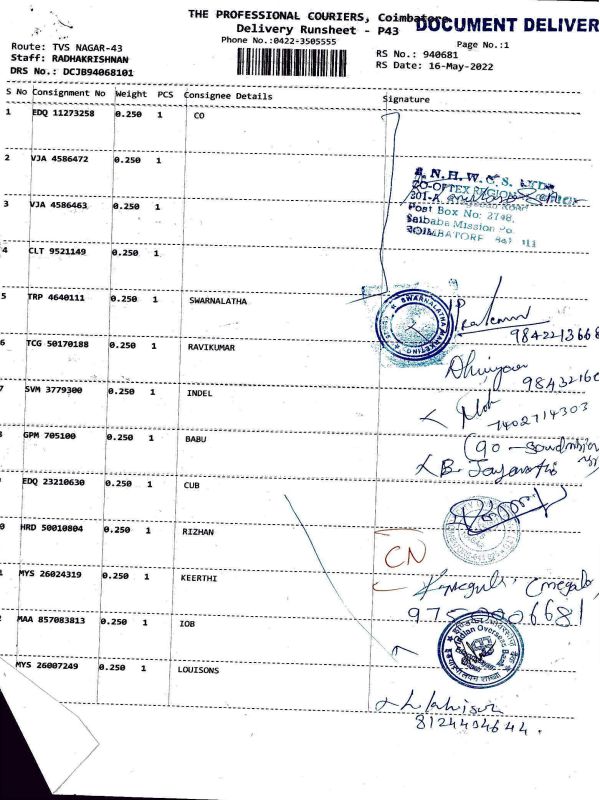 THE PROFESSIONAL COURIERS, Coimbatore
DOCUMENT DELIVER
Delivery Runsheet - P43
Phone No.:0422-3505555
Page No.:1
Route: TVS NAGAR-43
Staff: RADHAKRISHNAN
RS No.: 940681
DRS No.: DCJB94068101
RS Date: 16-May-2022
S No Consignment No Weight PCS Consignee Details Signature
1 EDQ 11273258 0.250 1 CO
2 VJA 4586472 0.250 1
3 VJA 4586463 0.250 1
N. H. W. C. S. LTD
CO-OPTEX REGION
201-A
Post Box No: 2748,
Saibaba Mission Po.
COIMBATORE 641 111
4 CLT 9521149 0.250 1
5 TRP 4640111 0.250 1 SWARNALATHA
SWARNALATHA MARKETING
9842213668
6 TCG 50170188 0.250 1 RAVIKUMAR
98432160
7 SVM 3779300 0.250 1 INDEL
7402714303
GPM 705100 0.250 1 BABU
B. Jayavathi
EDQ 23210630 0.250 1 CUB
0 HRD 50010804 0.250 1 RIZHAN
CN
1 MYS 26024319 0.250 1 KEERTHI
MAA 857083813 0.250 1 IOB
Indian Overseas Bank
MYS 26007249 0.250 1 LOUISONS
8124404644.